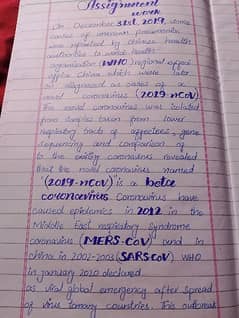 Assignment
work
On December 31st, 2019, some
cases of unknown pneumonia
were reported by chinese health
authorities to world health
organization (WHO) regional office
China which were later
on diagnosed as cases of a
novel coronavirus (2019-nCoV)
The novel coronavirus was isolated
from samples taken from lower
respiratory tracts of affectees, gene
sequencing and comparison of
to the existing coronavirus revealed
that the novel coronavirus named
"(2019-nCoV)" is a beta
coronavirus Coronavirus have
caused epidemics in 2012 in the
Middle East respiratory Syndrome
coronavirus (MERS-CoV) and in
China in 2002-2003 (SARS-CoV) WHO
in january 2020 declared
as viral global emergency after spread
of virus to many countries. This outbreak